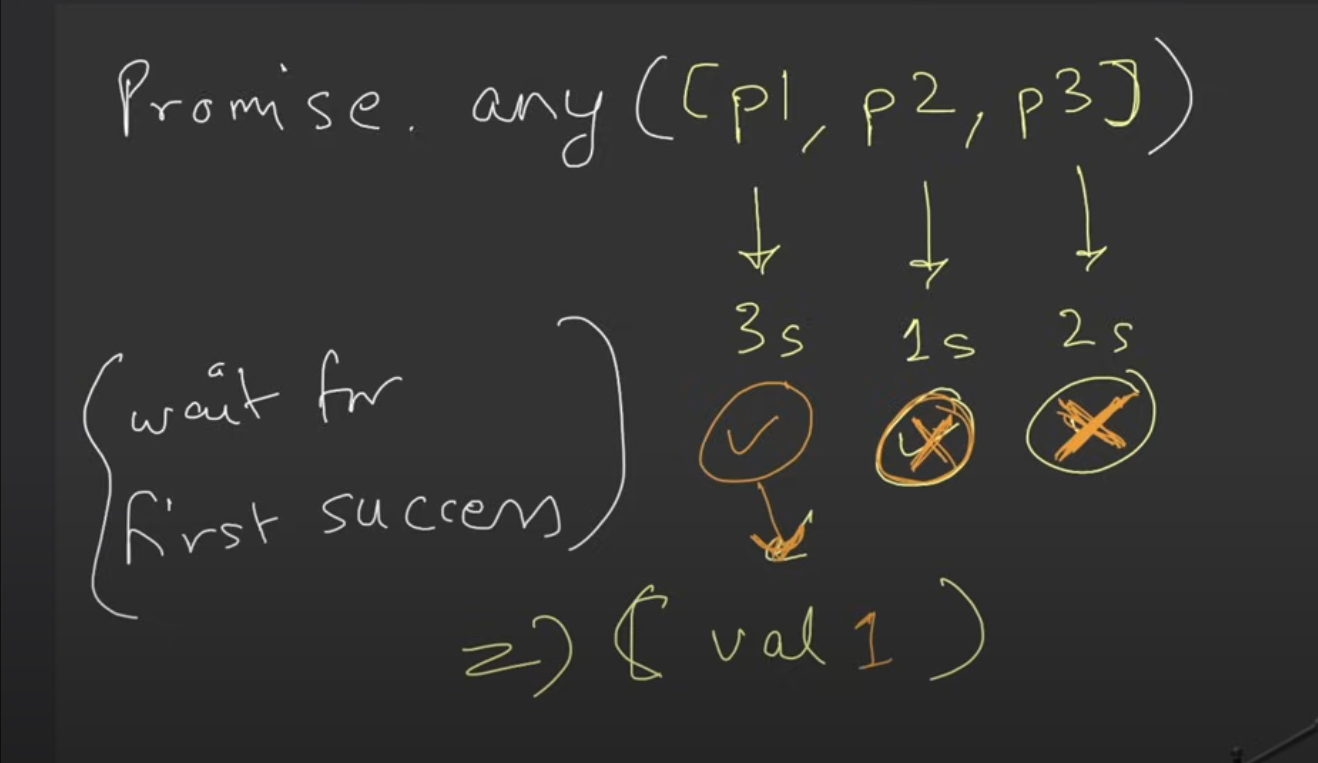 Promise. any([p1, p2, p3])
3s 1s 2s
wait for
first success
=> (val 1)